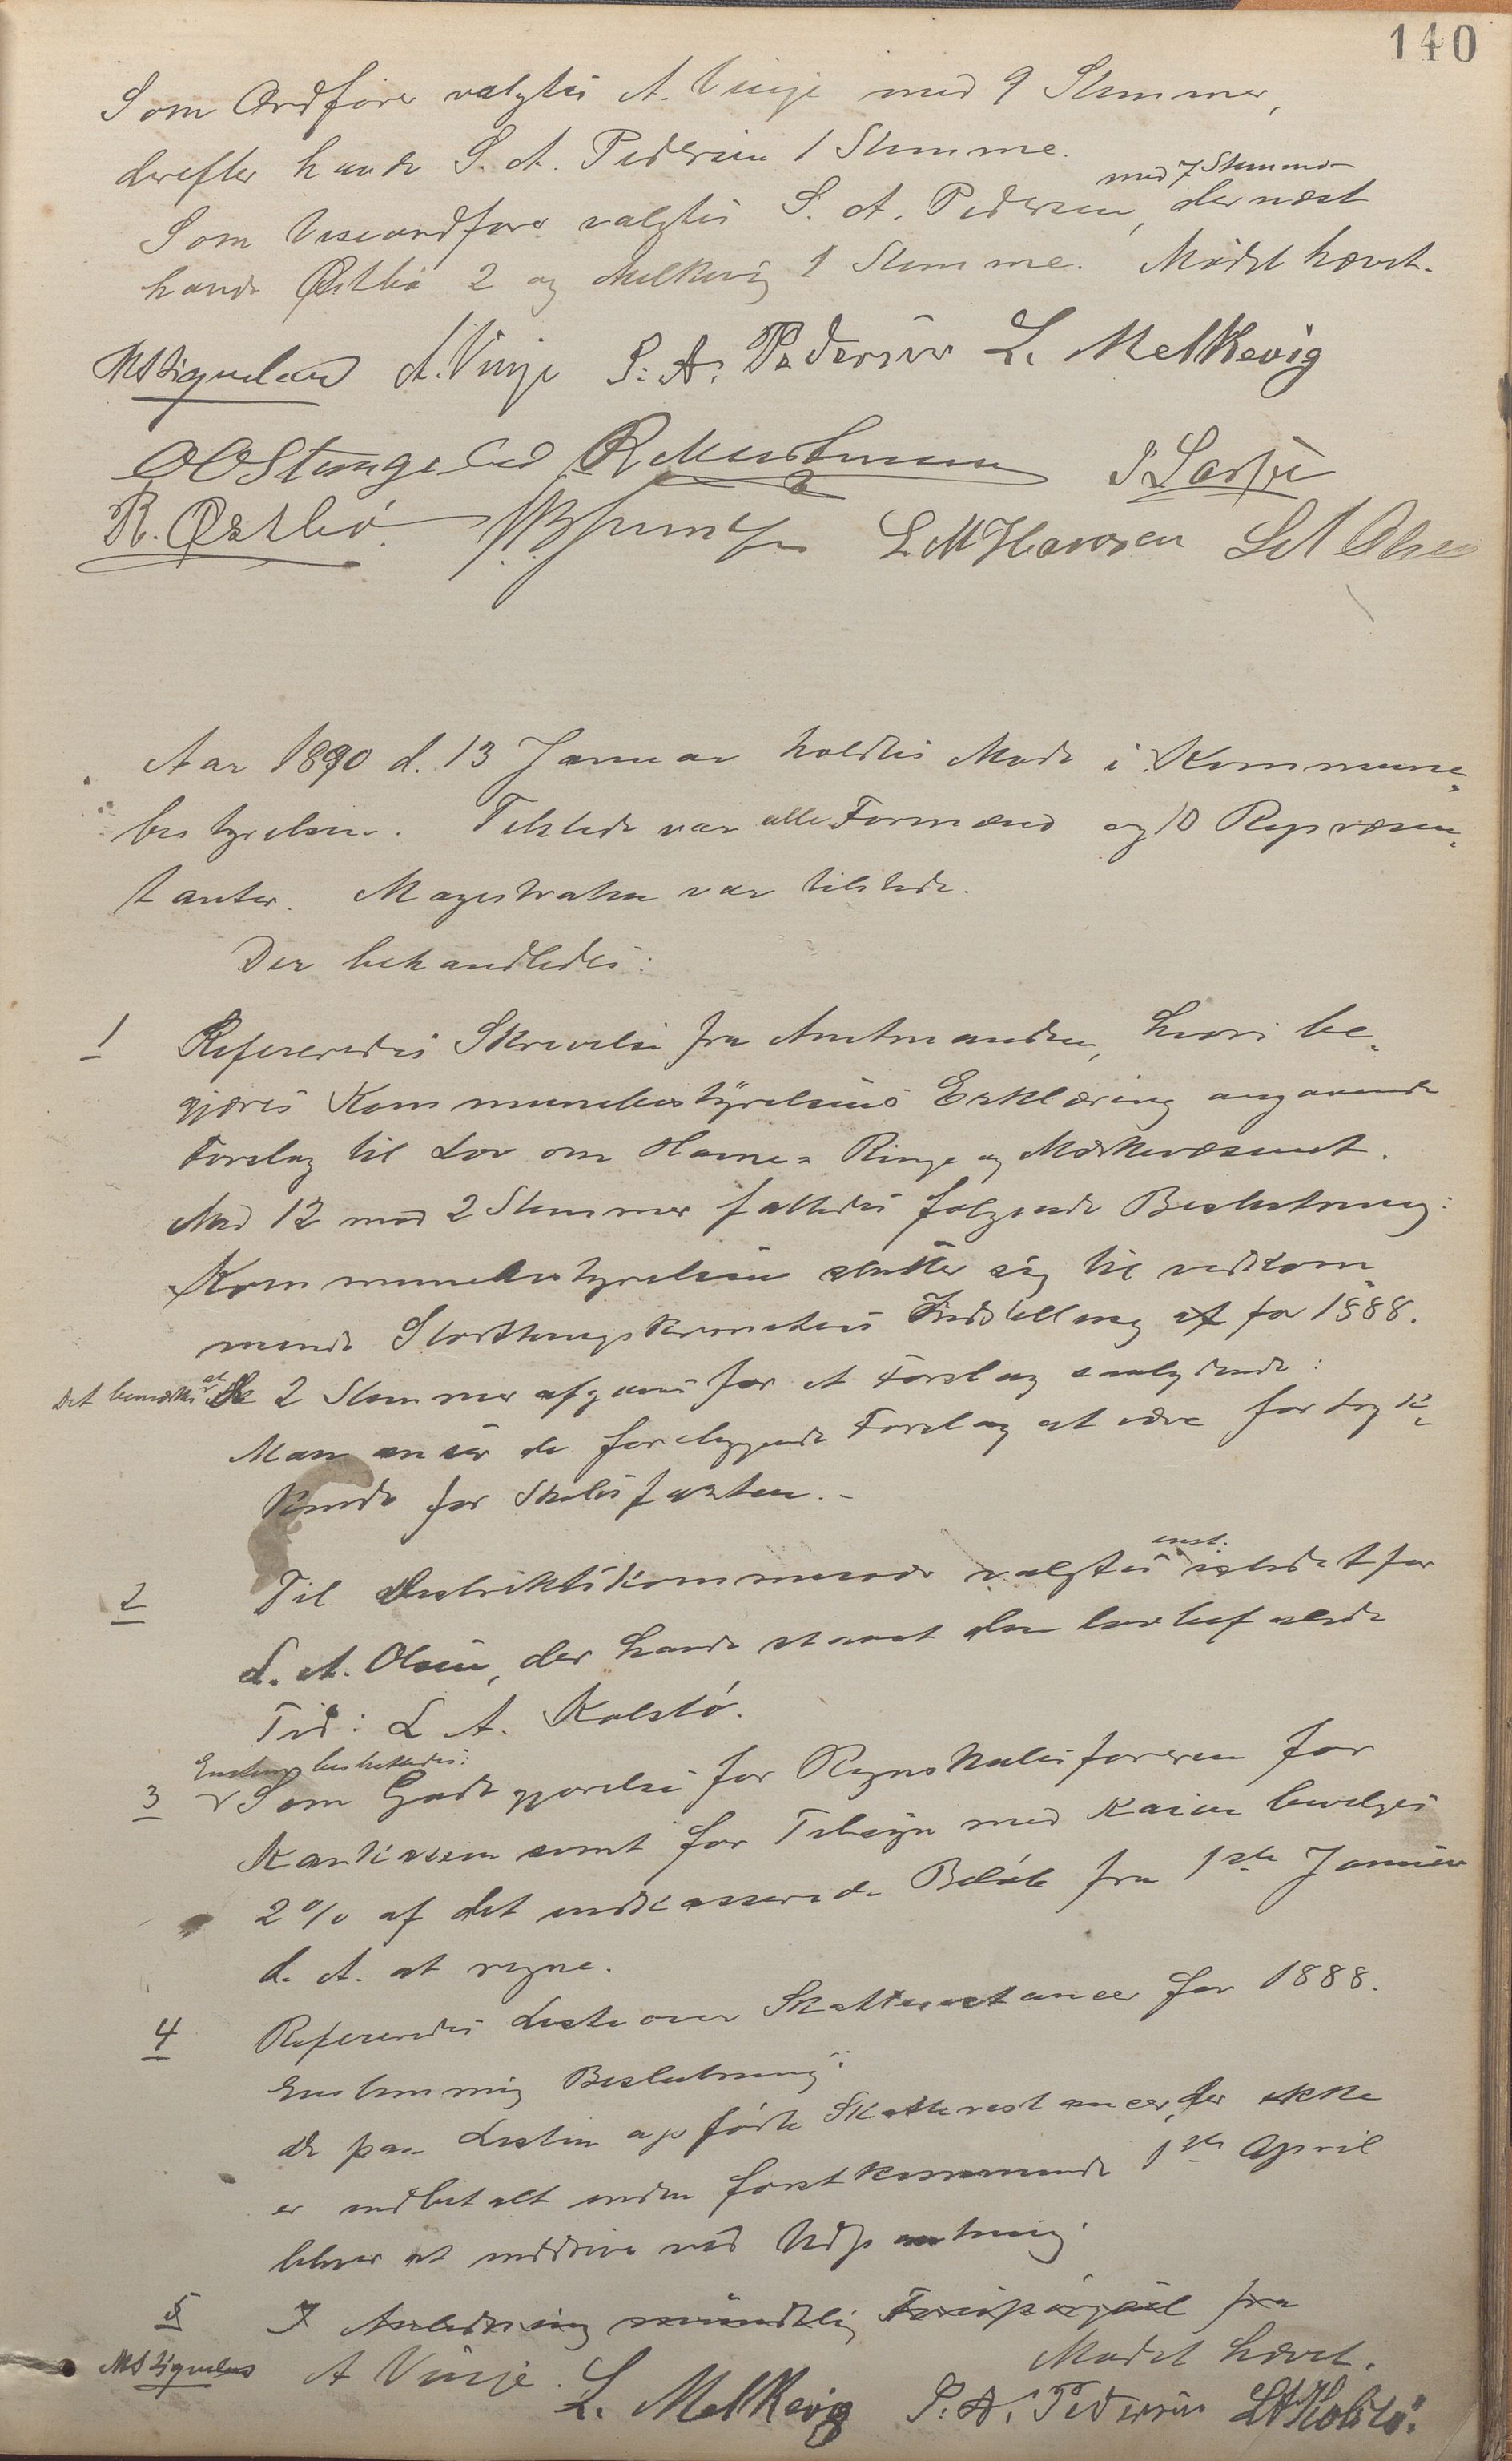 140
Som Ordfører valgtes A. Vinje med 9 Stemmer,
derefter havde S. A. Pedersen 1 Stemme.
med 7 Stemmer
Som Viseordfører valgtes S. A. Pedersen, dernæst
havde Østbø 2 og Melkevig 1 Stemme. Mødet hævet.
A. Vinje S. A. Pedersen L. Melkevig
R. Østbø L M Hansen L A Olsen
Aar 1890 d. 13 Januar holdtes Møde i Kommune-
bestyrelsen. Tilstede var alle Formænd og 10 Repræsen-
tanter. Magistraten var tilstede.
Der behandledes:
1 Refereredes Skrivelse fra Amtmanden, hvori be-
gjæres Kommunebestyrelsens Erklæring angaaende
Forslag til Lov om Havne- Ringe og Mærkevæsenet.
Med 12 mod 2 Stemmer fattedes følgende Beslutning:
Kommunebestyrelsen slutter sig til vedkom-
mende Storthingskomites Indstilling af for 1888.
Det bemærkes at De 2 Stemmer afgaves for et Forslag saalydende:
Man anser de foreliggende Forslag at være fortryk-
kende for Skibsfarten.-
2 Til Distriktskommisær valgtes enst. istedetfor
L. A. Olsen, der havde staaet den lovbefalede
Tid: L A. Kolstø.
Enstem. besluttedes:
3 Som Godtgjørelse for Regnskabsføreren for
Havnekassen samt for Tilsyn med Kaien bevilges
2% af det indkasserede Beløb fra 1ste Januar
d. A. at regne.
4 Refereredes Liste over Skatterestancer for 1888.
Enstemmig Beslutning:
De paa Listen opførte Skatterestancer, der ikke
er indbetalt inden førstkommende 1ste April
bliver at inddrive ved Udpantning.
5 I Anledning mundtlig Forespørgsel fra
Mødet hævet.
A Vinje L. Melkevig S. A. Pedersen LA Kolstø.